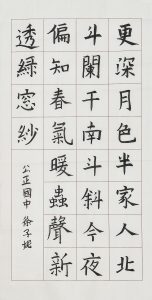 更深月色半家人北
斗闌干南斗斜今夜
偏知春氣暖蟲聲新
透綠窓紗
公正國中 徐子婗